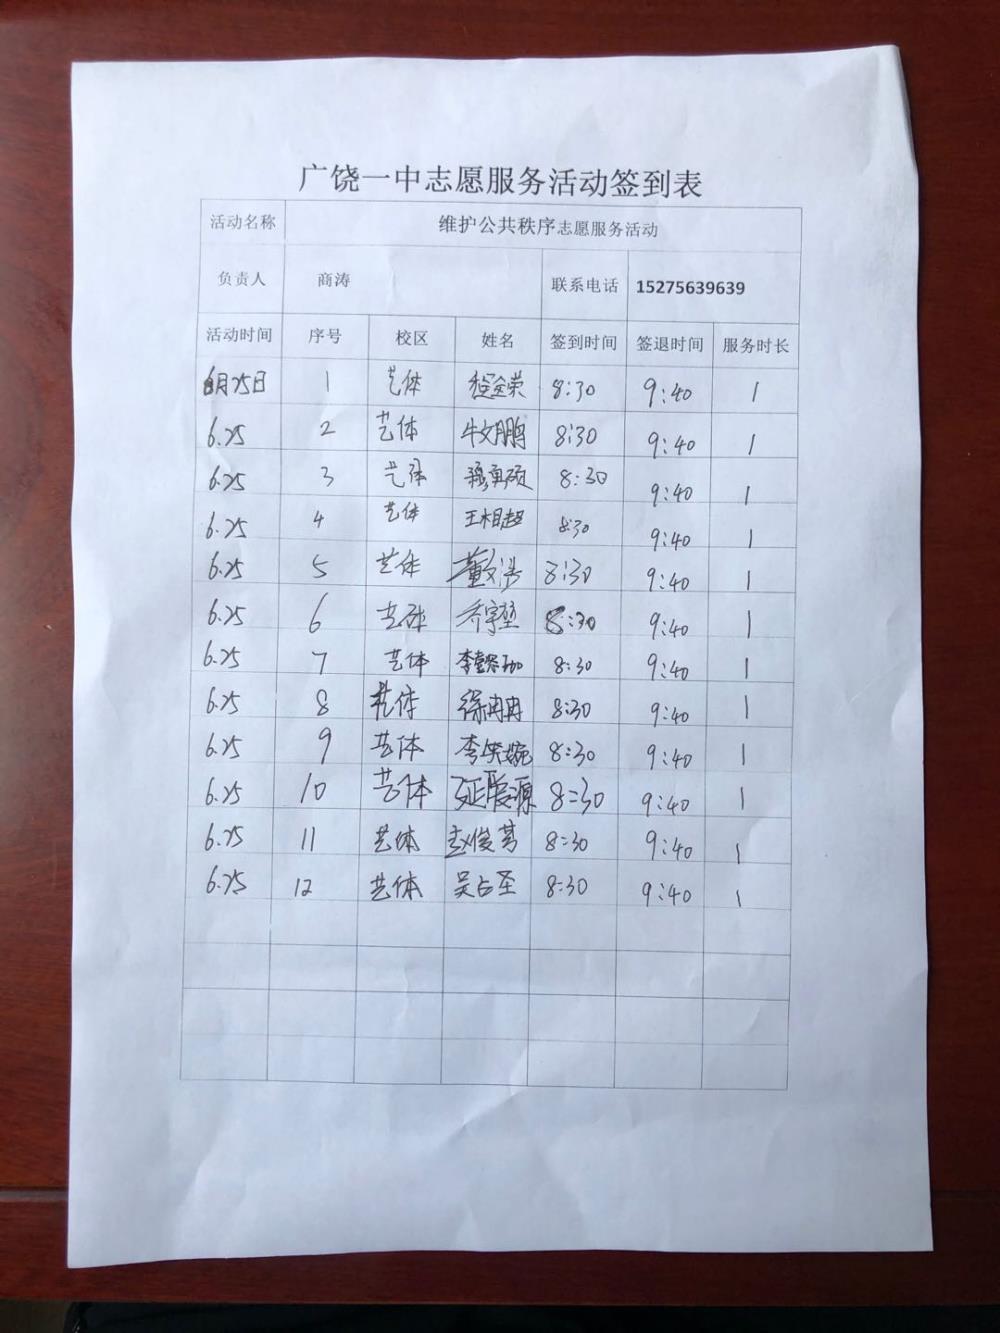 广饶一中志愿服务活动签到表
活动名称 维护公共秩序志愿服务活动
负责人 商涛 联系电话 15275639639
活动时间 序号 校区 姓名 签到时间 签退时间 服务时长
6月25日 1 艺体 程金荣 8:30 9:40 1
6.25 2 艺体 牛文鹏 8:30 9:40 1
6.25 3 艺体 8:30 9:40 1
6.25 4 艺体 王相超 8:30 9:40 1
6.25 5 艺体 8:30 9:40 1
6.25 6 艺体 乔宇堃 8:30 9:40 1
6.25 7 艺体 8:30 9:40 1
6.25 8 艺体 徐冉冉 8:30 9:40 1
6.25 9 艺体 8:30 9:40 1
6.25 10 艺体 延聚源 8:30 9:40 1
6.25 11 艺体 8:30 9:40 1
6.25 12 艺体 吴占圣 8:30 9:40 1